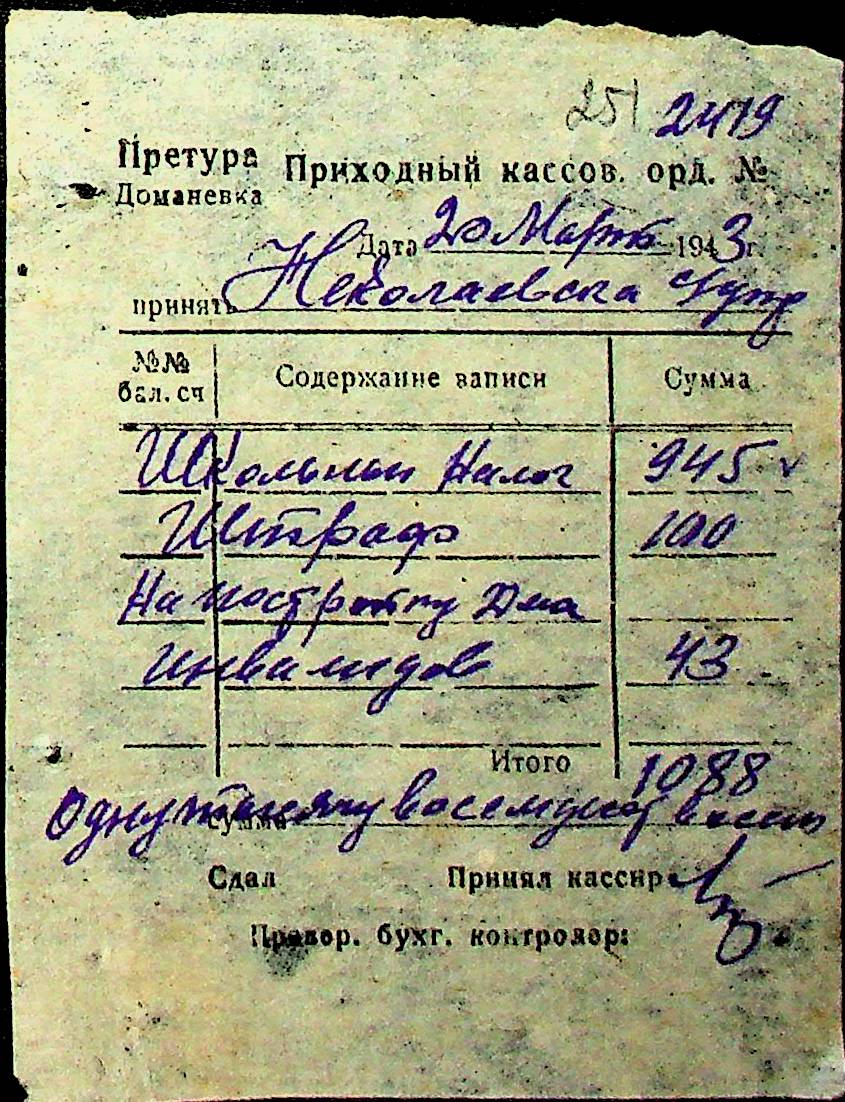 251 2419
Претура Приходный кассов. орд. №
Доманевка
Дата 20 Марта 1943 г.
принять Николаевска
№№ бал. сч Содержание записи Сумма
Школьный Налог 945
Штраф 100
На постройку Дма
инвалидов 43
Итого 1088
сумма Одну тысячу восемдесят восемь
Сдал Принял кассир
Провер. бухг. контролер: